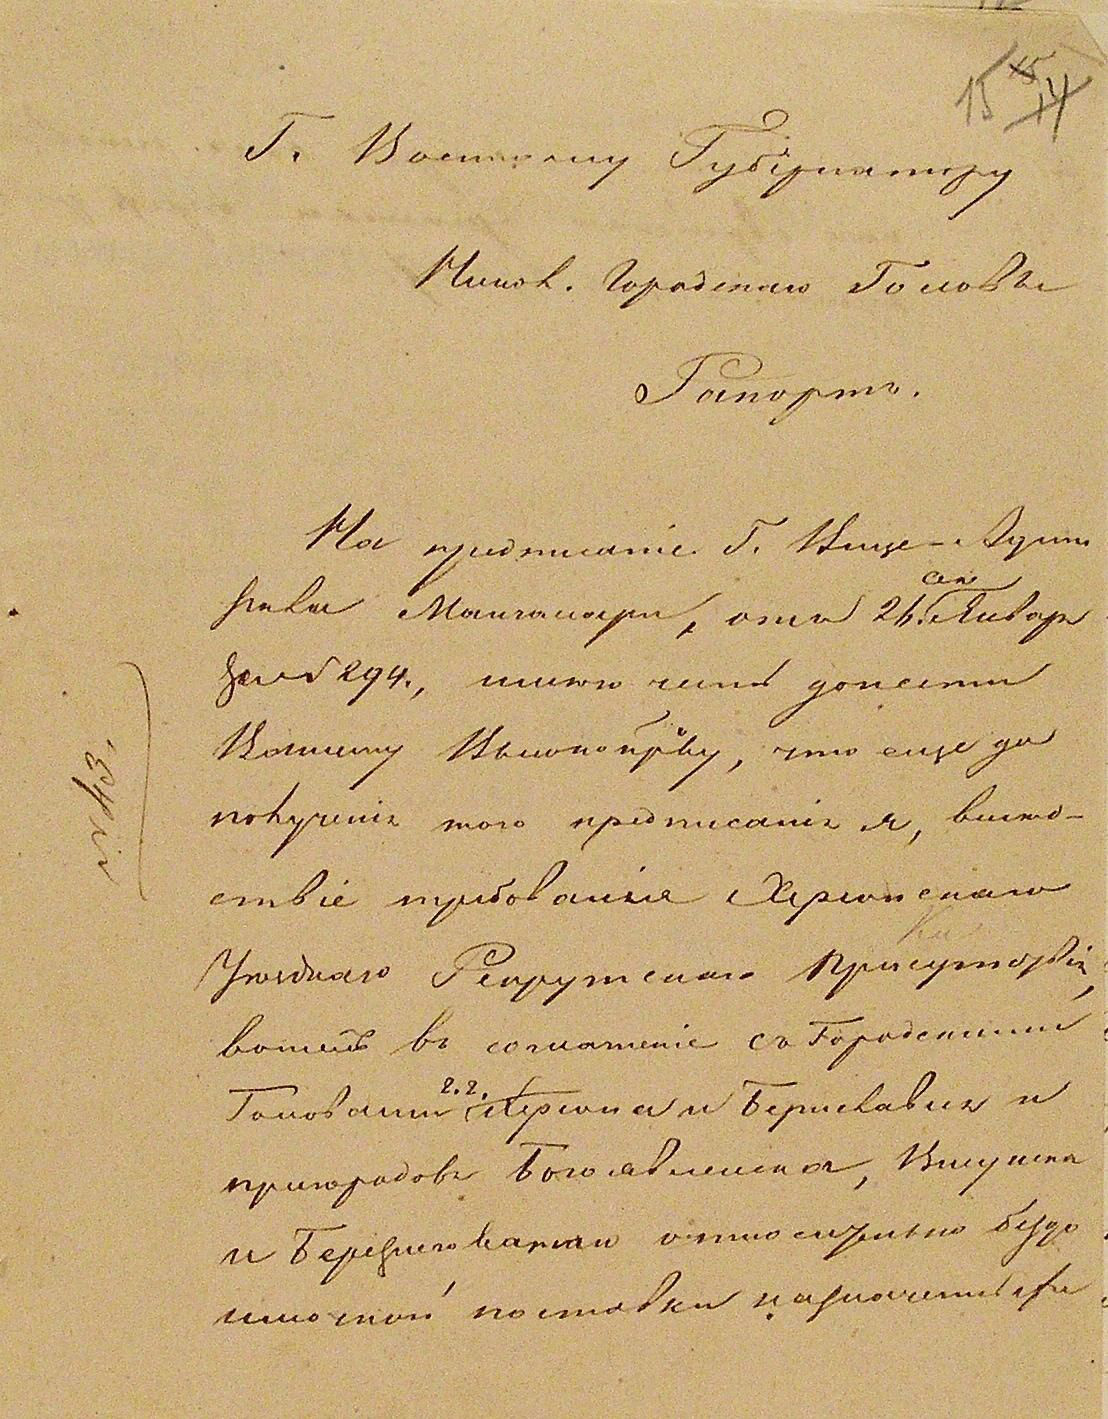 15
Г. Военному Губернатору
Никол. Городскаго Головы
Рапортъ.
На предписаніе Г. Вице-Адми
рала Манганари, отъ 26. сего Января
за № 294., имѣю честь донести
Вашему Высокопр-ву, что еще до
полученія того предписанія я, вслѣд-
ствіе требованія Херсонскаго
Уѣзднаго Рекрутскаго Присутствія,
вошелъ въ соглашеніе съ Городскими
Головами г.г. Херсона и Берислава и
пригородовъ Богоявленска, Висунска
и Березнеговатаго относительно бездо
имочной поставки